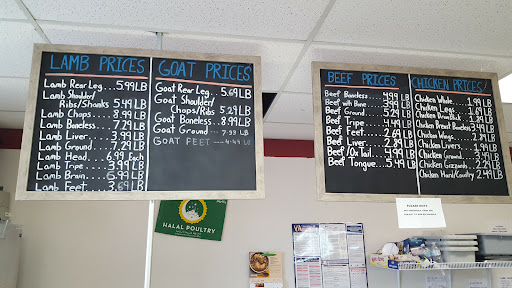 LAMB PRICES
Lamb Rear Leg....5.99 LB
Lamb Shoulder/
Ribs/Shanks 5.49 LB
Lamb Chops....8.99 LB
Lamb Boneless....7.29 LB
Lamb Liver....3.99 LB
Lamb Ground....7.29 LB
Lamb Head....6.99 Each
Lamb Tripe....3.99 LB
Lamb Brain....6.99 LB
Lamb Feet....3.69 LB
GOAT PRICES
Goat Rear Leg....5.69 LB
Goat Shoulder/
Chops/Ribs 5.29 LB
Goat Boneless....8.99 LB
Goat Ground....7.99 LB
GOAT FEET....4.49 LB
BEEF PRICES
Beef Boneless....4.99 LB
Beef with Bone....3.99 LB
Beef Ground....5.29 LB
Beef Tripe....4.49 LB
Beef Feet....2.69 LB
Beef Liver....2.89 LB
Beef/Ox Tail....4.99 LB
Beef Tongue....5.49 LB
CHICKEN PRICES
Chicken Whole....1.99 LB
Chicken Legs....1.49 LB
Chicken Drumstick 1.89 LB
Chicken Breast Boneless 3.49 LB
Chicken Wings....LB
Chicken Livers....1.99 LB
Chicken Ground....3.49 LB
Chicken Gizzards....2.49 LB
Chicken Hard/Country 2.49 LB
HALAL POULTRY
PLEASE NOTE